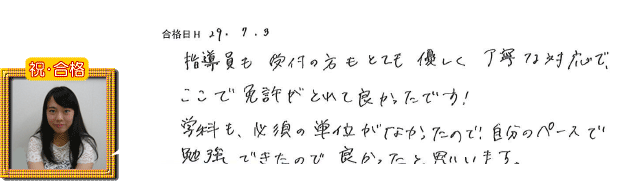 合格日H 29. 7. 3
祝・合格
指導員も受付の方もとても優しく丁寧な対応で、
ここで免許がとれて良かったです!
学科も、必須の単位がなかったので、自分のペースで
勉強できたので良かったと思います。